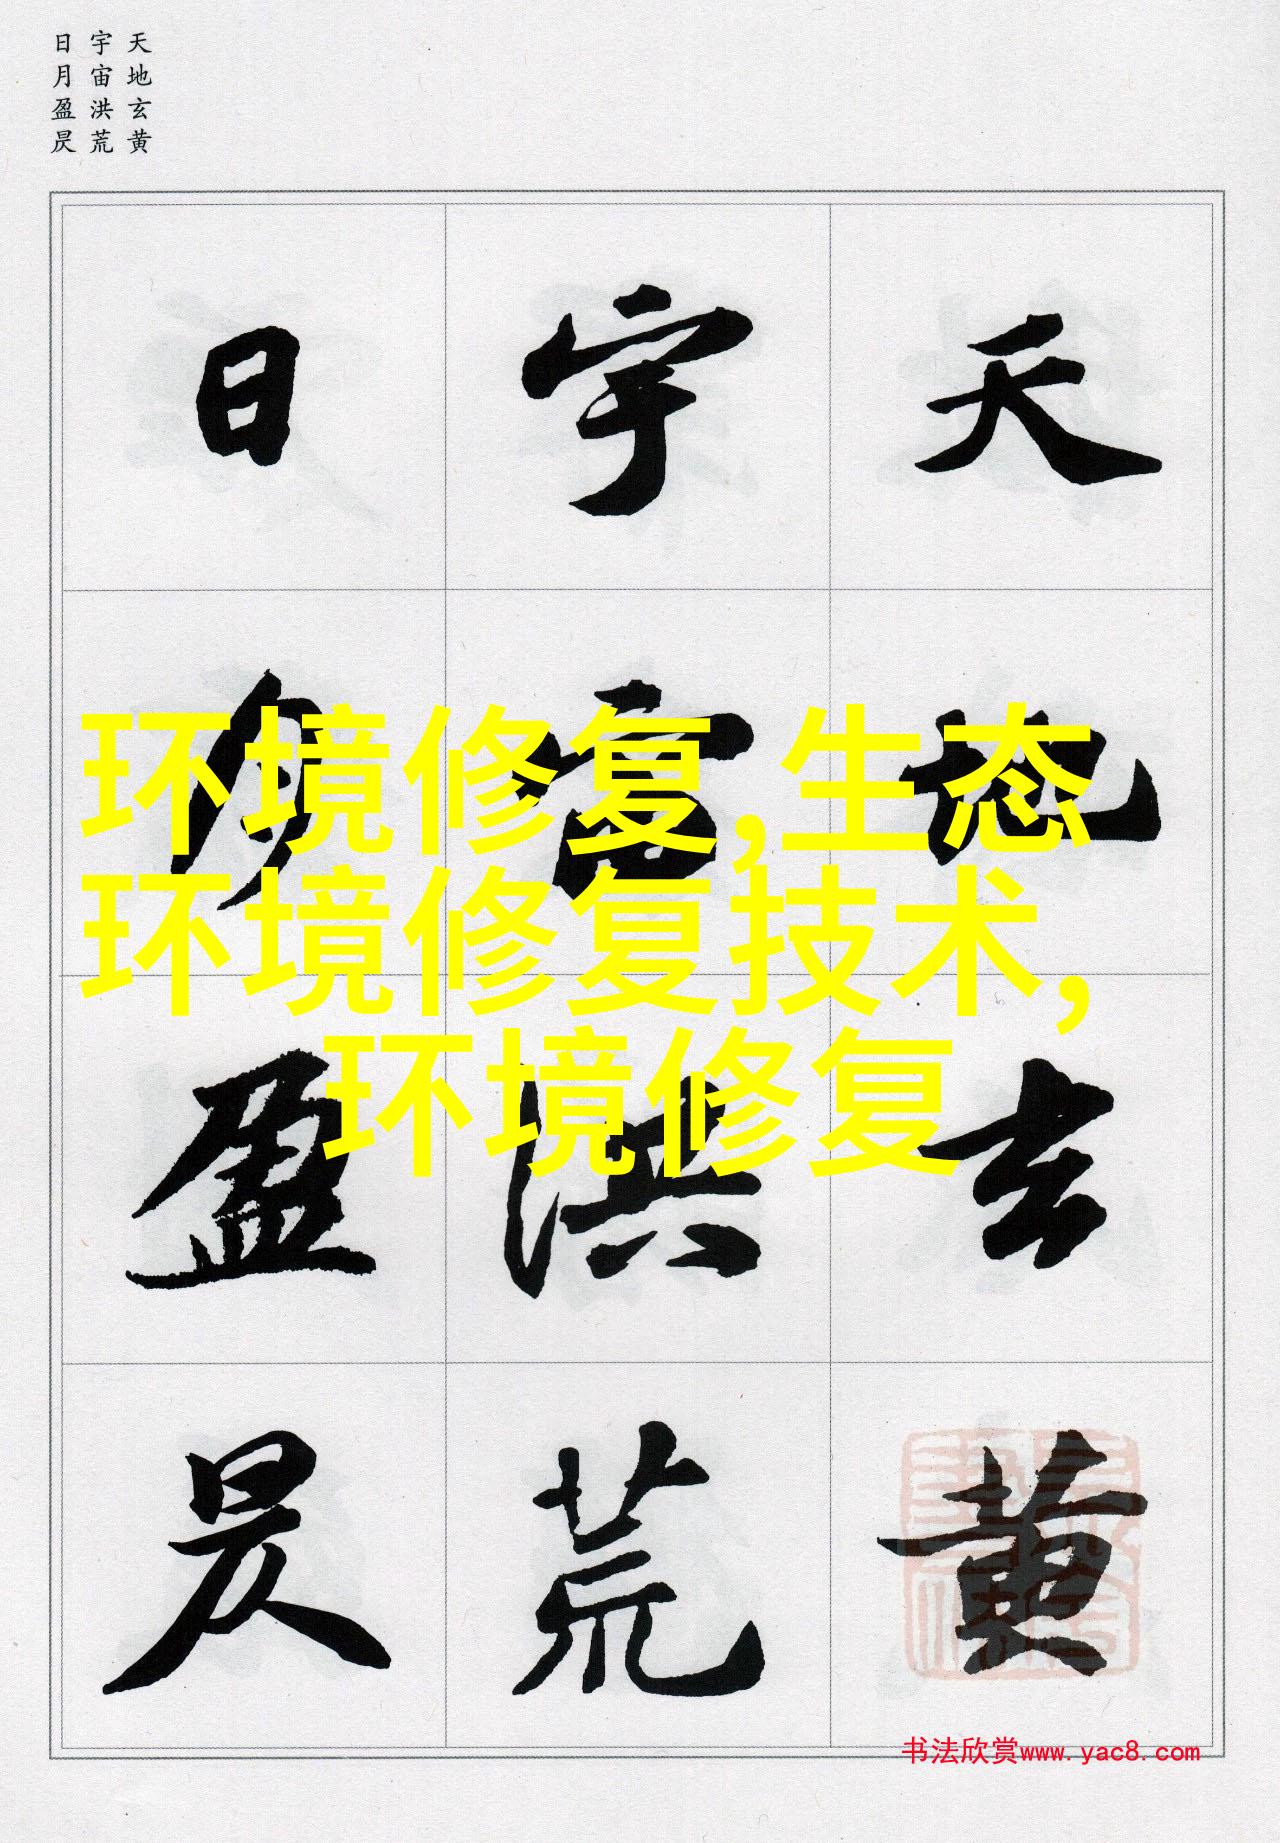 天地玄黄
宇宙洪荒
日月盈昃
天地玄黄
宇宙洪荒
日月盈昃
环境修复,生态
环境修复技术,
环境修复
书法欣赏www.yac8.com